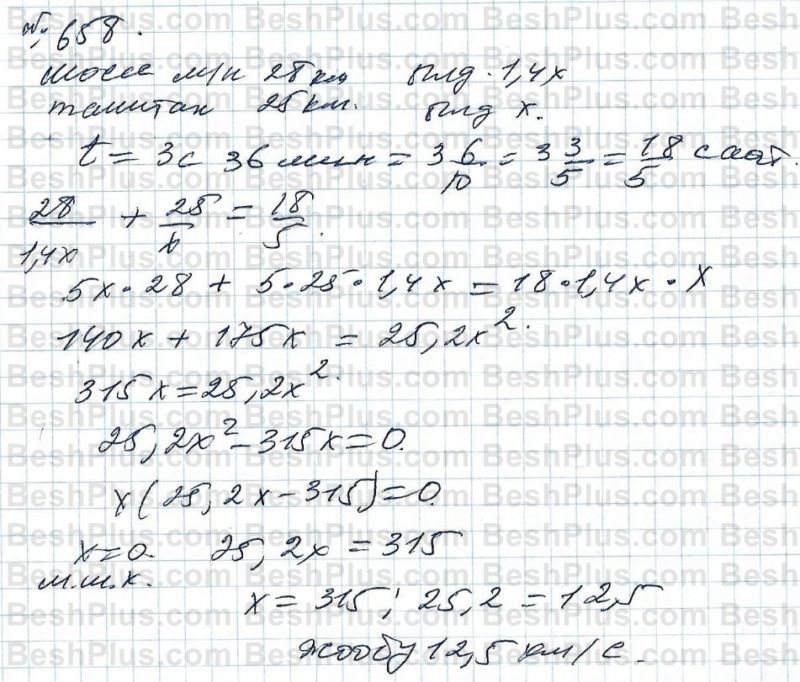 № 658.
шоссе м/н 28 км ылд. 1,4x
таштак 25 км. ылд x.
t = 3с 36 мин = 3 6/10 = 3 3/5 = 18/5 саат.
28/1,4x + 25/x = 18/5.
5x·28 + 5·25·1,4x = 18·1,4x·x
140x + 175x = 25,2x².
315x = 25,2x².
25,2x² - 315x = 0.
x(25,2x - 315) = 0.
x = 0. 25,2x = 315
м.ш.к.
x = 315 : 25,2 = 12,5
жообу 12,5 км/с.
BeshPlus.com